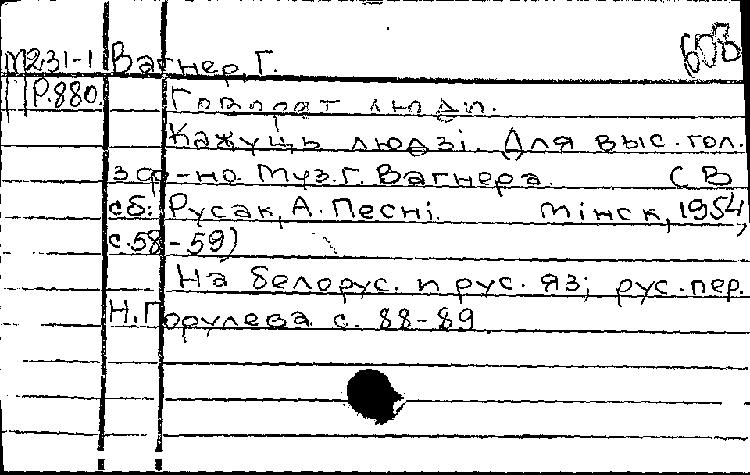 608
М2.31-1 Вагнер, Г.
П Р.880. Говорят люди.
Кажуць людзі. Для выс. гол.
з ф-но. Муз. Г. Вагнера. (В
сб: Русак, А. Песні. Мінск, 1954,
с.58-59)
На белорус. и рус. яз; рус. пер.
Н. Горулева с. 88-89